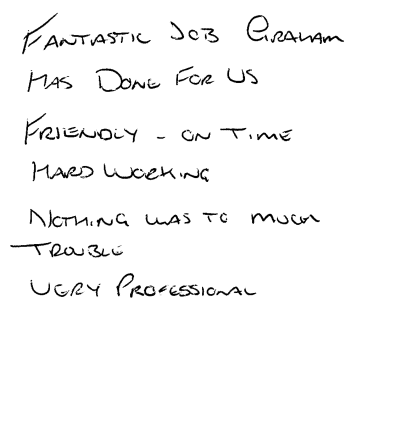 Fantastic Job Graham
Has Done For Us
Friendly - on time
Hard Working
Nothing was to much
Trouble
Very Professional